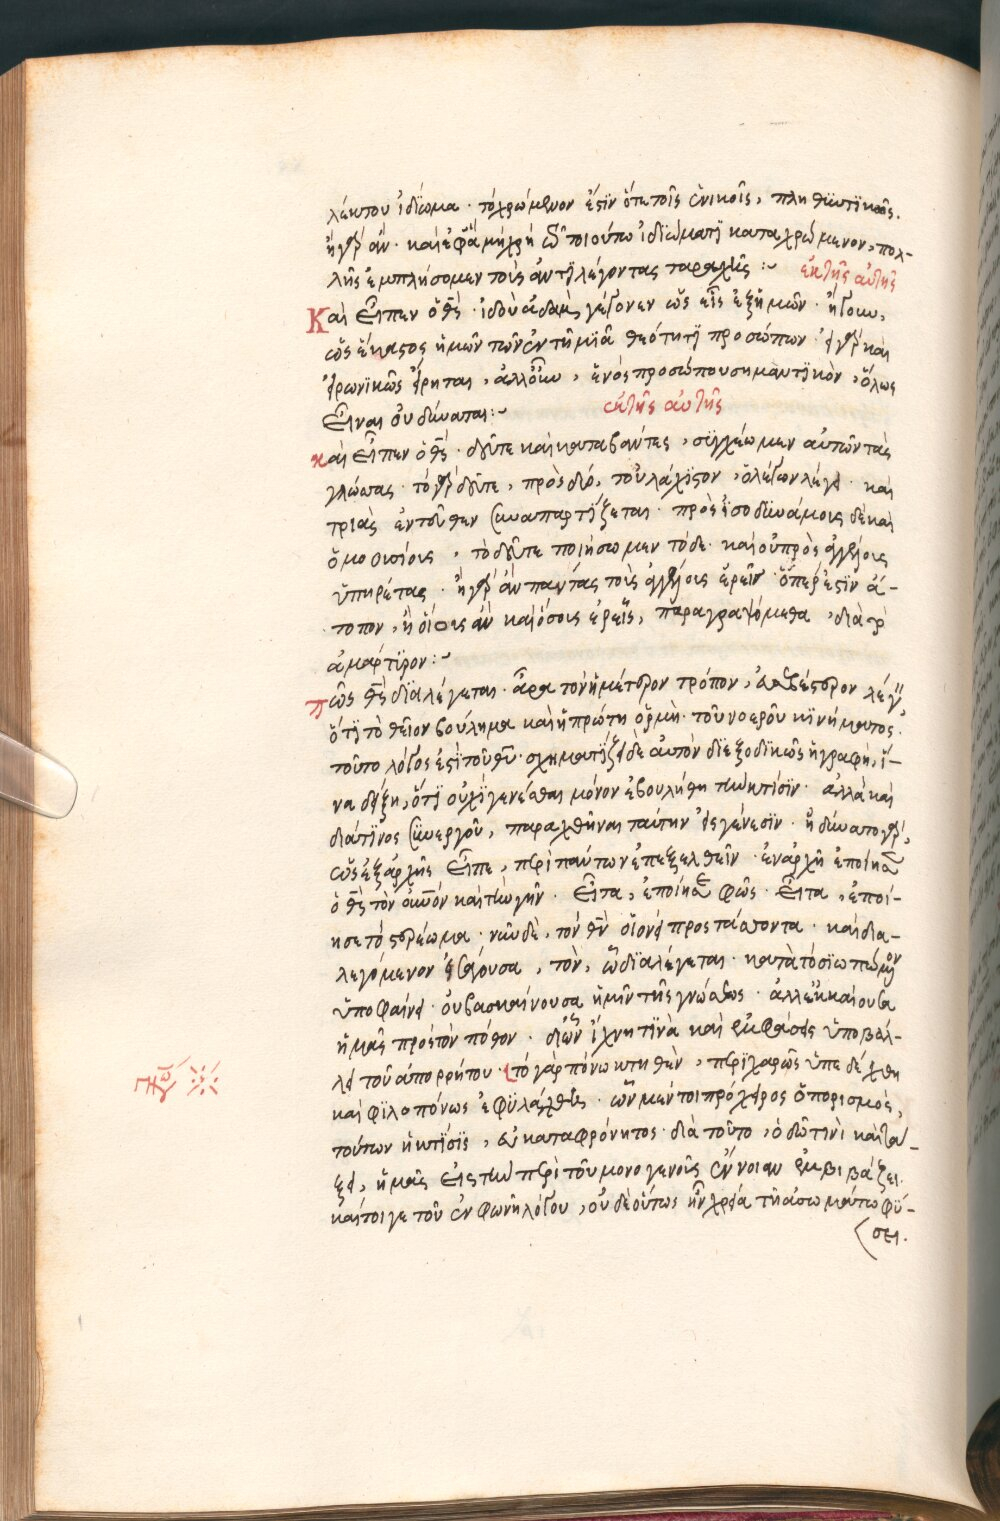 λέκτου ἰδίωμα · τὸ χρώμενον ἐστὶν ὅτε τοῖς ἑνικοῖς, πληθυντικῶς.
ἢ γὰρ ἂν · καὶ ἐφ' ἃ μὴ χρὴ τῷ τοιούτω ἰδιώματι καταχρώμενον, πολ-
λῆς ἐμπλήσομεν τοὺς ἀντιλέγοντας ταραχῆς :~ ἐκ τῆς αὐτῆς
Καὶ εἶπεν ὁ θς · ἰδοὺ ἀδὰμ γέγονεν ὡς εἷς ἐξ ἡμῶν · ἤγουν,
ὡς ἕκαστος ἡμῶν τῶν ἐν τῆ μιᾶ θεότητι προσώπων · εἰ γὰρ καὶ
εἰρωνικῶς εἴρηται, ἀλλ' οὖν, ἑνὸς προσώπου σημαντικὸν, ὅλως
εἶναι οὐ δύναται :~ ἐκ τῆς αὐτῆς
καὶ εἶπεν ὁ θς · δεῦτε καὶ καταβάντες, συγχέωμεν αὐτῶν τὰς
γλώσσας · τὸ γὰρ δεῦτε, πρὸς δύο, τοὐλάχιστον, ὁ λέγων λέγει · καὶ
τριὰς ἐντεῦθεν συναπαρτίζεται · πρὸς ἰσοδυνάμοις δὲ καὶ
ὁμοουσίοις, τὸ δεῦτε ποιήσωμεν τόδε · καὶ οὐ πρὸς ἀγγέλοις
ὑπηρέτας · ἢ γὰρ ἂν πάντας τοὺς ἀγγέλοις ἐρεῖν · ὅπερ ἐστὶν ἄ-
τοπον, ἢ οἵοις ἂν καὶ ὅσοις ἐρεῖς, παραγραψόμεθα, διὰ τὸ
ἀμάρτυρον :~
πῶς θς διαλέγεται · ἆρα τὸν ἡμέτερον τρόπον, ἢ θειότερον λέγειν,
ὅτι τὸ θεῖον βούλημα καὶ ἡ πρώτη ὁρμὴ · τοῦ νοεροῦ κινήματος ·
τοῦτο λόγος ἐστὶ τοῦ θυ · σχηματίζει δὲ αὐτὸν διεξοδικῶς ἡ γραφὴ, ἵ-
να δείξη, ὅτι οὐχὶ γενέσθαι μόνον ἐβουλήθη τὴν κτίσιν · ἀλλὰ καὶ
διά τινος συνεργοῦ, παραχθῆναι ταύτην εἰς γένεσιν · ἠδύνατο γὰρ,
ὡς ἐξ ἀρχῆς εἶπε, περὶ πάντων ἐπεξελθεῖν · ἐν ἀρχῆ ἐποίησεν
ὁ θς τὸν οὐνὸν καὶ τὴν γῆν · εἶτα, ἐποίησε φῶς · εἶτα, ἐποί-
ησε τὸ στερέωμα · νῦν δὲ, τὸν θν οἱονεὶ προστάσσοντα · καὶ δια-
λεγόμενον εἰσάγουσα, τὸν, ᾧ διαλέγεται · κατὰ τὸ σιωπώμενον
ὑποφαίνει · οὐ βασκαίνουσα ἡμῖν τῆς γνώσεως · ἀλλ' ἐκκαίουσα
ἡμᾶς πρὸς τὸν πόθον · δι' ὧν ἴχνη τινὰ καὶ ἐμφάσεις ὑποβάλ-
λει τοῦ ἀπορρήτου · τὸ γὰρ πόνω κτηθὲν, περιχαρῶς ὑπεδέχθη
καὶ φιλοπόνως ἐφυλάχθη · ὧν μέν τοι πρόχειρος ὁ πορισμὸς,
τούτων ἡ κτίσις, εὐκαταφρόνητος · διὰ τοῦτο, ὁδῶ τινὶ καὶ τά-
ξει, ἡμᾶς εἰς τὴν περὶ τοῦ μονογενοῦς ἔννοιαν ἐμβιβάζει ·
καί τοι γε τοῦ ἐν φωνῆ λόγου, οὐδὲ οὕτως ἦν χρεία τῆ ἀσωμάτω φύ-
σει.